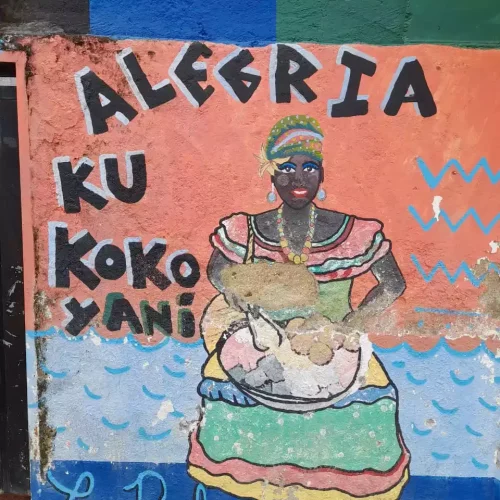 ALEGRIA
KU
KOKO
Y ANÍ